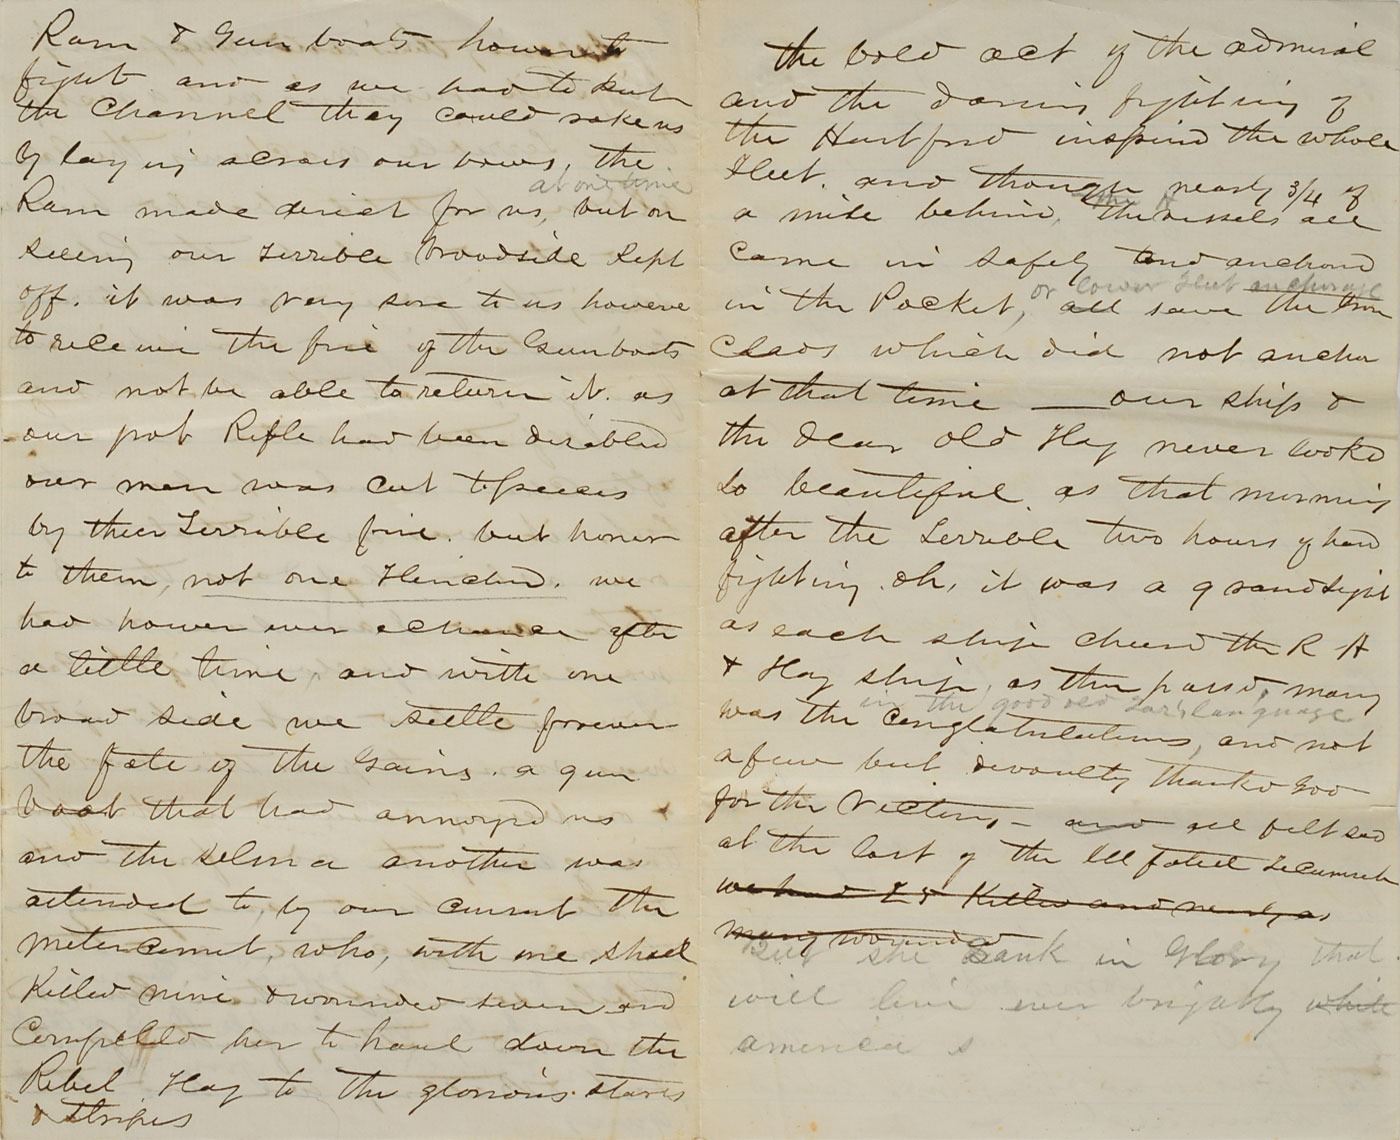 Ram & Gun boats however to
fight and as we had to keep
the Channel they could rake us
by laying across our bows, the
at one time
Ram made direct for us, but on
seeing our terrible broadside kept
off. it was very sore to us however
to receive the fire of the Gunboats
and not be able to return it. as
our Rifle had been disabled
our men was cut to peeces
by their terrible fire. but honor
to them, not one flinched. we
had however a chance after
a little time, and with one
broad side we settle forever
the fate of the Gains. a gun
boat that had annoyed us
and the Selma another was
attended to, by our consort the
Metercomet, who, with one shell
Killed nine & wounded seven and
Compelld her to haul down the
Rebel Flag to the glorious stars
& Stripes
the bold act of the admiral
and the daring fighting of
the Hartford inspired the whole
Fleet. and though nearly 3/4 of
a mile behind, the vessels all
came in safely and anchord
or lower fleet anchorage
in the Pocket, all save the Iron
Clads which did not anchor
at that time — our ship &
the dear old Flag never lookd
so beautiful as that morning
after the terrible two hours of hard
fighting. oh, it was a grand sight
as each ship cheerd the R A
& Flag ship, as they passd, many
in the good old tar's language
was the conglatulations, and not
a few but devoutly thankd God
for the Victory — and all felt sad
at the lost of the Ill fated Tecumseh
we had 25 Killed and nearly as
many wounded
But she sank in Glory that
will live ever brightly while
america s